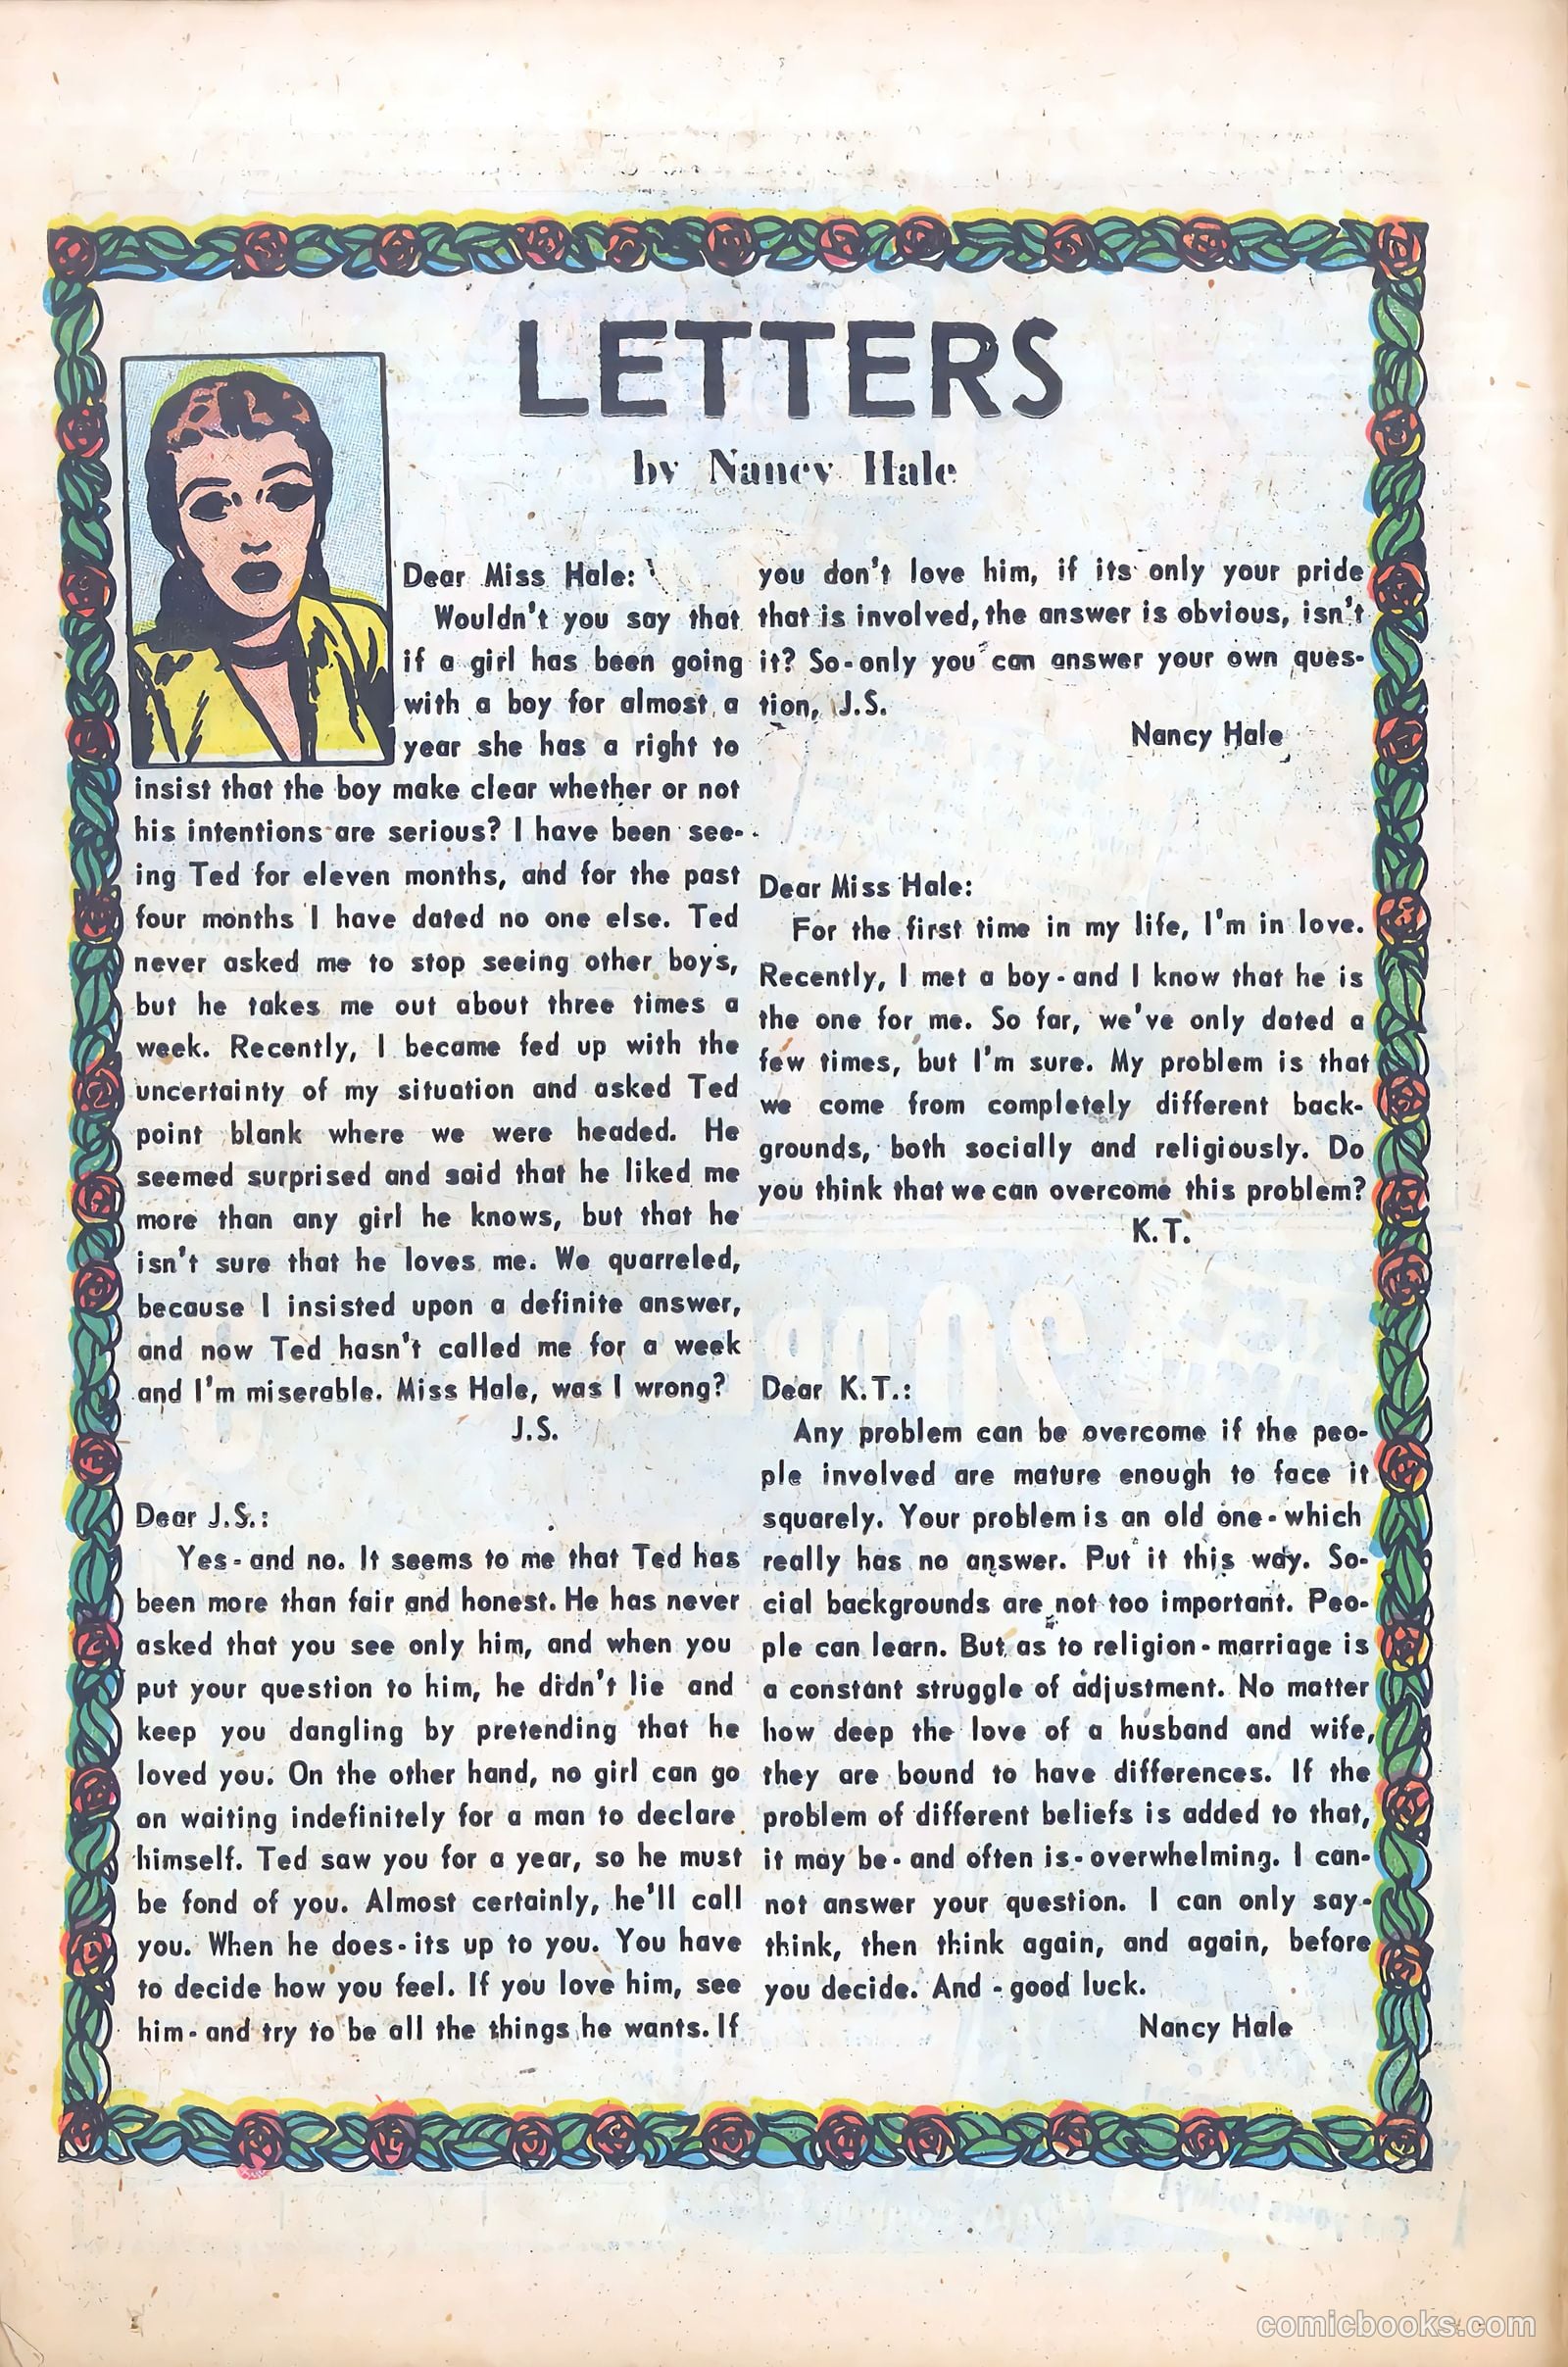 LETTERS
by Nancy Hale
Dear Miss Hale:
Wouldn't you say that
if a girl has been going
with a boy for almost a
year she has a right to
insist that the boy make clear whether or not
his intentions are serious? I have been see-
ing Ted for eleven months, and for the past
four months I have dated no one else. Ted
never asked me to stop seeing other boys,
but he takes me out about three times a
week. Recently, I became fed up with the
uncertainty of my situation and asked Ted
point blank where we were headed. He
seemed surprised and said that he liked me
more than any girl he knows, but that he
isn't sure that he loves me. We quarreled,
because I insisted upon a definite answer,
and now Ted hasn't called me for a week
and I'm miserable. Miss Hale, was I wrong?
J.S.
Dear J.S.:
Yes - and no. It seems to me that Ted has
been more than fair and honest. He has never
asked that you see only him, and when you
put your question to him, he didn't lie and
keep you dangling by pretending that he
loved you. On the other hand, no girl can go
on waiting indefinitely for a man to declare
himself. Ted saw you for a year, so he must
be fond of you. Almost certainly, he'll call
you. When he does - its up to you. You have
to decide how you feel. If you love him, see
him - and try to be all the things he wants. If
you don't love him, if its only your pride
that is involved, the answer is obvious, isn't
it? So - only you can answer your own ques-
tion, J.S.
Nancy Hale
Dear Miss Hale:
For the first time in my life, I'm in love.
Recently, I met a boy - and I know that he is
the one for me. So far, we've only dated a
few times, but I'm sure. My problem is that
we come from completely different back-
grounds, both socially and religiously. Do
you think that we can overcome this problem?
K.T.
Dear K.T.:
Any problem can be overcome if the peo-
ple involved are mature enough to face it
squarely. Your problem is an old one - which
really has no answer. Put it this way. So-
cial backgrounds are not too important. Peo-
ple can learn. But as to religion - marriage is
a constant struggle of adjustment. No matter
how deep the love of a husband and wife,
they are bound to have differences. If the
problem of different beliefs is added to that,
it may be - and often is - overwhelming. I can-
not answer your question. I can only say -
think, then think again, and again, before
you decide. And - good luck.
Nancy Hale
comicbooks.com